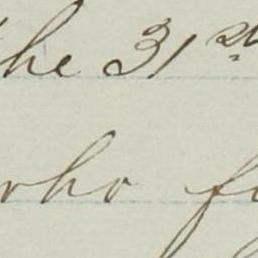 the 31st
who